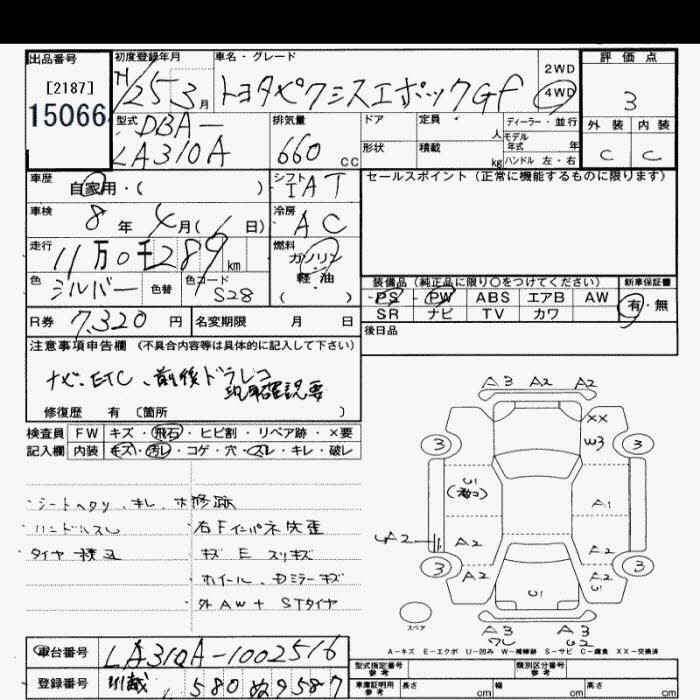 出品番号
[2187]
15066
初度登録年月
H/25 3月
車名・グレード
トヨタピクシスエポックGf
2WD
4WD
評価点
3
型式
DBA-
LA310A
排気量
660 CC
ドア
定員 人
ディーラー・並行
モデル年式 年
外装
内装
形状
積載 kg
ハンドル 左・右
C
C
車歴
自家用・( )
シフト
IAT
セールスポイント (正常に機能するものに限ります)
車検
8年 4月( 日)
冷房
AC
走行
11万0千289km
燃料
ガソリン
軽・油
( )
色
シルバー
色替
色コード
S28
装備品 (純正品に限り○をつけてください)
新車保証書
PS PW ABS エアB AW
有・無
SR ナビ TV カワ
R券 7,320円
名変期限 月 日
後日品
注意事項申告欄 (不具合内容等は具体的に記入して下さい)
ナビ.ETC、前後ドラレコ
現車確認要
修復歴 有 〔箇所 〕
検査員 FW キズ・飛石・ヒビ割・リペア跡・×要
記入欄 内装 キズ・汚レ・コゲ・穴・スレ・キレ・破レ
シートヘタリ、キレ、ホ修跡
ハンドルスレ
右Fインパネ失歪
タイヤ積込
キズ E スリキズ
ホイール、Dミラーキズ
外AW+STタイヤ
A3 A2 A2
XX
W3
3
3
U1
A1
A2
A2
A2
A2
3
3
A2
A2
U1
U1
スペア
A3
A3
U2
A-キズ E-エクボ U-凹み W-補修跡 S-サビ C-腐食 XX-交換済
車台番号
LA310A-1002516
登録番号
580 ぬ 9587
型式指定番号
参考
類別区分番号
参考
車庫証明用
参考
長さ cm
幅 cm
高さ cm